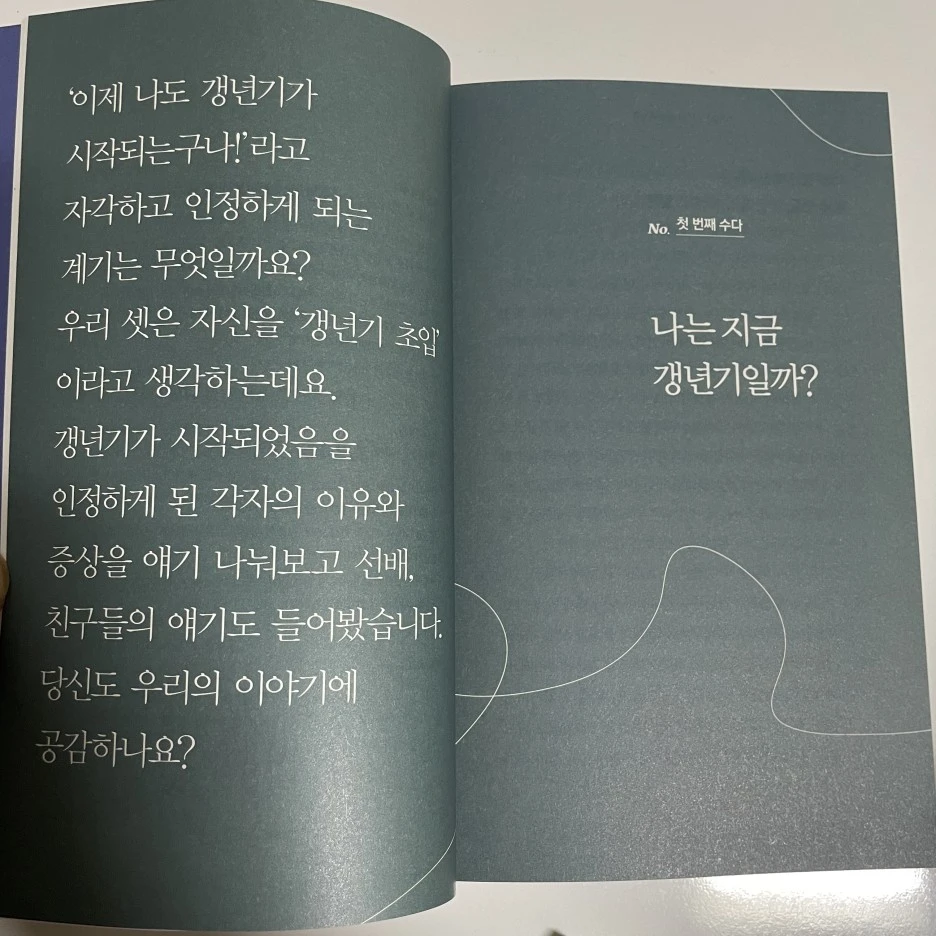 '이제 나도 갱년기가
시작되는구나!'라고
자각하고 인정하게 되는
계기는 무엇일까요?
우리 셋은 자신을 '갱년기 초입'
이라고 생각하는데요.
갱년기가 시작되었음을
인정하게 된 각자의 이유와
증상을 얘기 나눠보고 선배,
친구들의 얘기도 들어봤습니다.
당신도 우리의 이야기에
공감하나요?
No. 첫 번째 수다
나는 지금
갱년기일까?